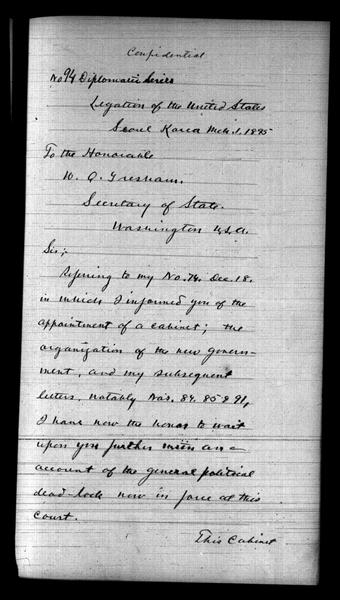 Confidential
No 94 Diplomatic Series
Legation of the United States
Seoul Korea Mch. 1. 1895
To the Honorable
W. Q. Gresham.
Secretary of State.
Washington U.S.A.
Sir;-
Refering to my No. 74. Dec. 18.
in which I informed you of the
appointment of a cabinet; the
organization of the new govern-
ment, and my subsequent
letters, notably Nos. 84. 85 & 91,
I have now the honor to wait
upon you further with an
account of the general political
dead-lock now in force at this
court.
This Cabinet